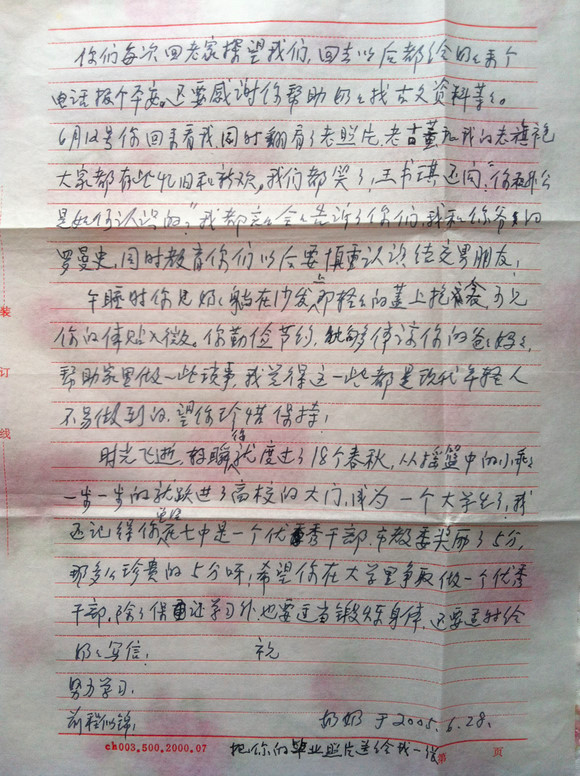 你们每次回老家探望我们,回去以后都给回来个
电话报个平安。还要感谢你帮助奶奶找古文资料等等。
6月12号你回来看我,同时翻看了老照片、老古董和我的老旗袍
大家都有些忆旧和新欢。我们都哭了,王书琪还问:
是如何认识的。"我都 告诉了你们,我和你爷爷的
罗曼史,同时教育你们以后要慎重认识结交男朋友!
午睡时你见奶奶躺在沙发上那轻轻的盖上 可见
你的体贴入微。你勤俭节约,能够体谅你的爸爸妈妈,
帮助家里做一些琐事,我觉得这一些都是现代年轻人
不易做到的,望你珍惜保持!
时光飞逝,转瞬就度过了18个春秋,从摇篮中的小乖乖
一步一步的就跃进了高校的大门,成为一个大学生了,我
还记得你在七中是一个优秀干部,市 委奖励了5分,
那多么珍贵的5分呀,希望你在大学里争取做一个优秀
干部,除了保证学习外也要适当锻炼身体,还要适时给
奶奶写信! 祝
努力学习!
前程似锦!
奶奶 于2005.6.28.
把你的毕业照片送给我一张
ch003.500.2000.07
第 页
装
订
线